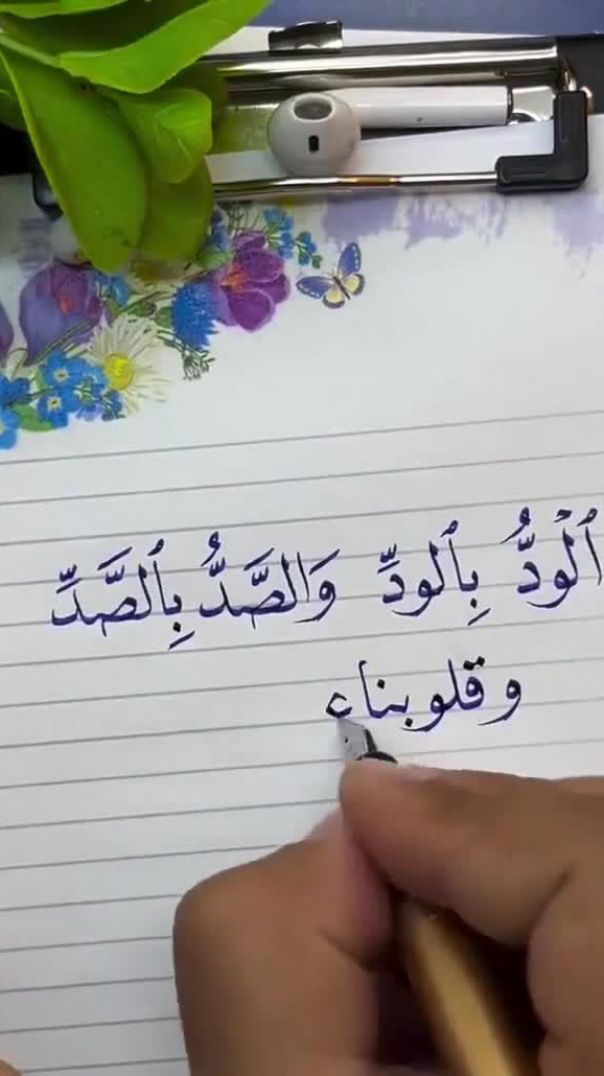 ٱلْودُّ بِٱلودِّ وَالصَّدُّ بِٱلصَّدِّ
وقلوبنا ع